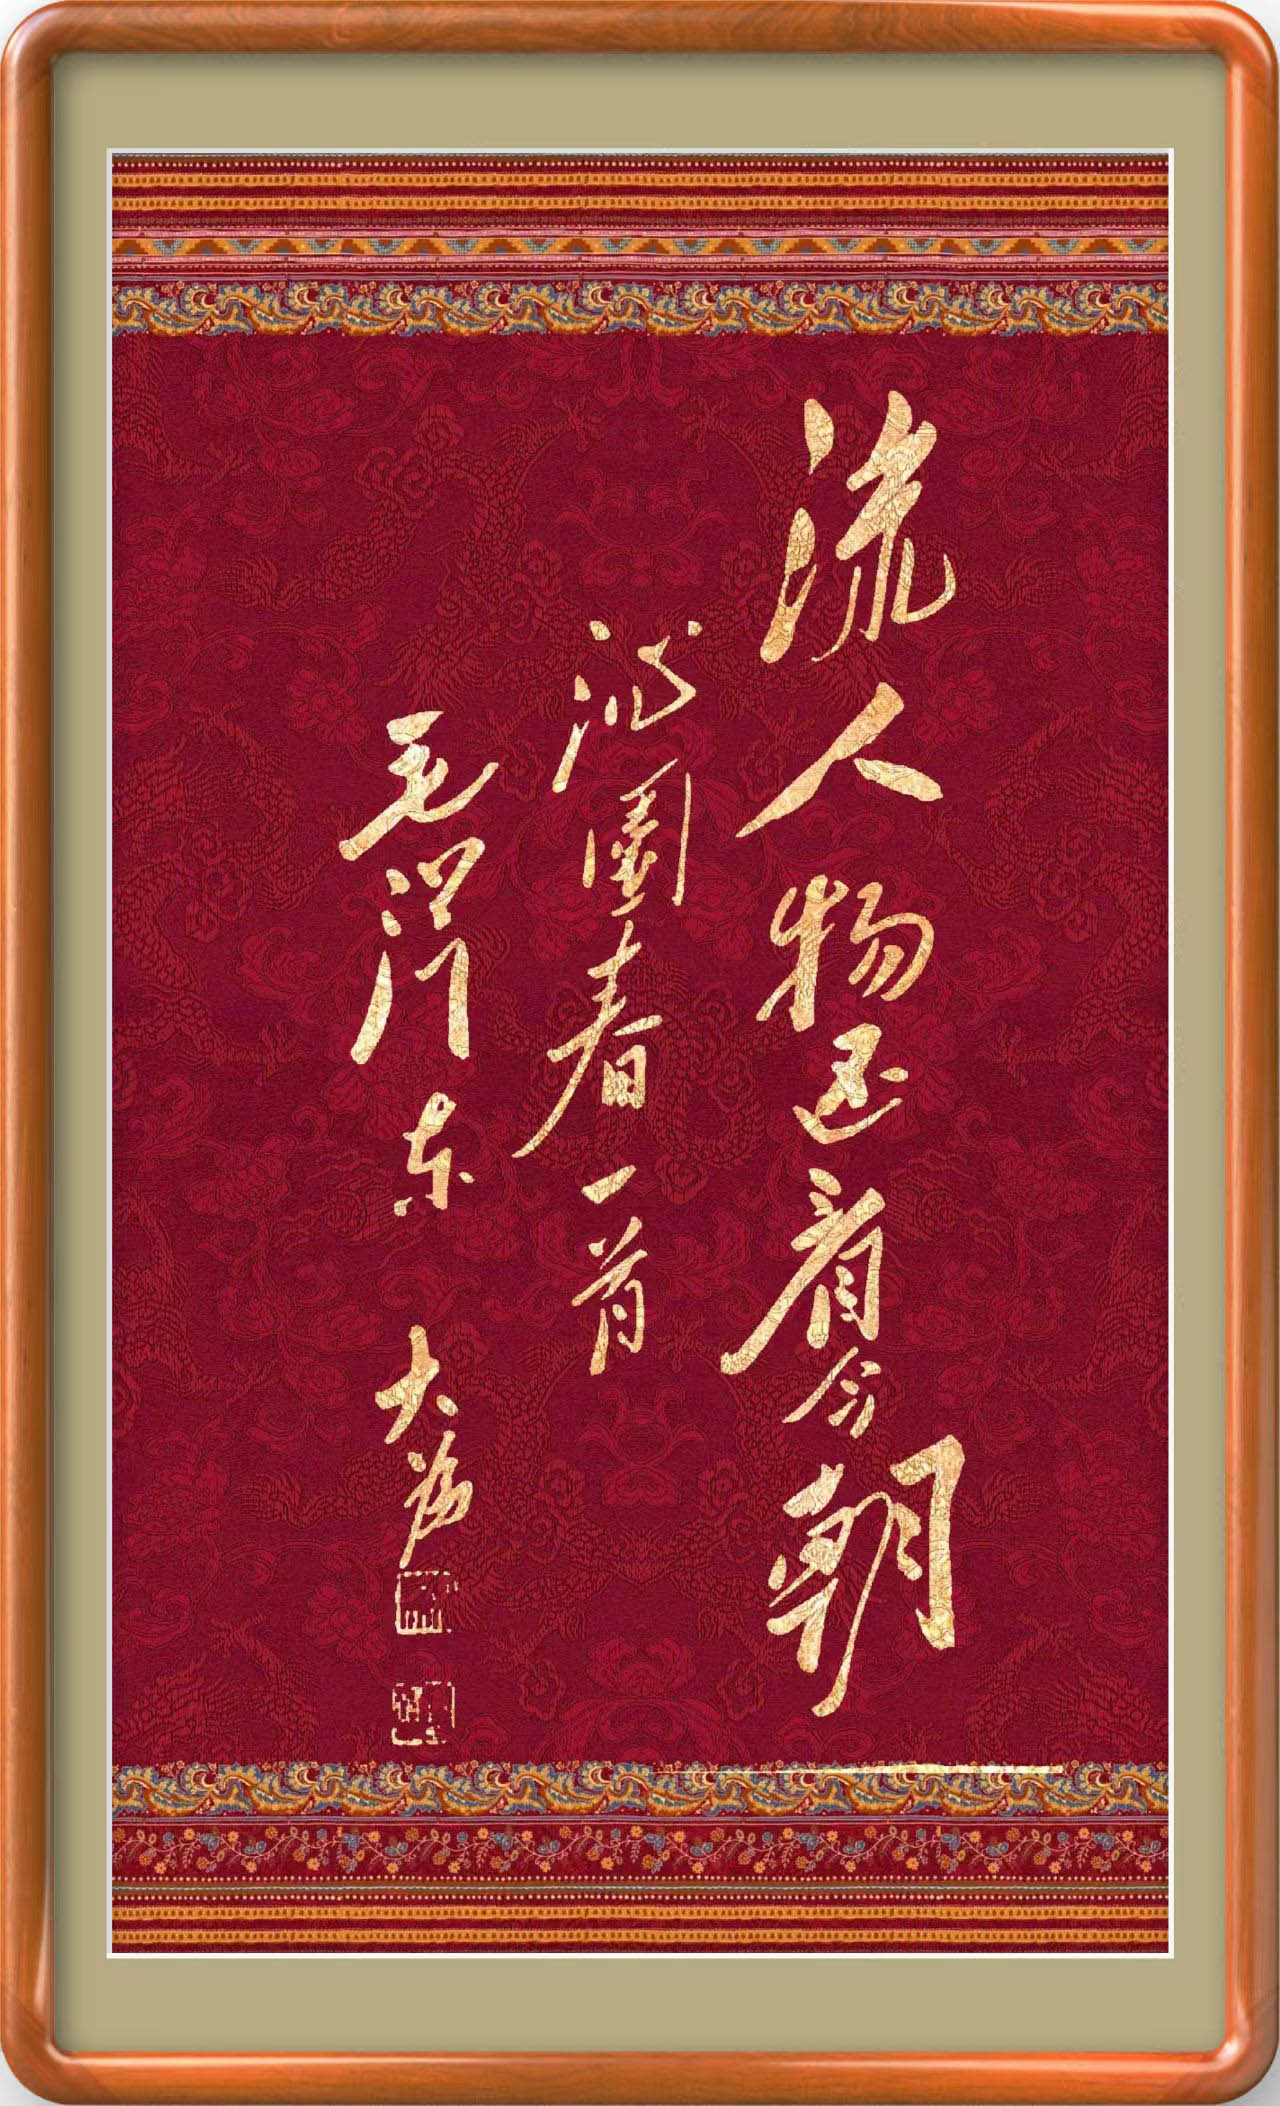 流人物还看今朝
沁園春一首
毛泽东
大为